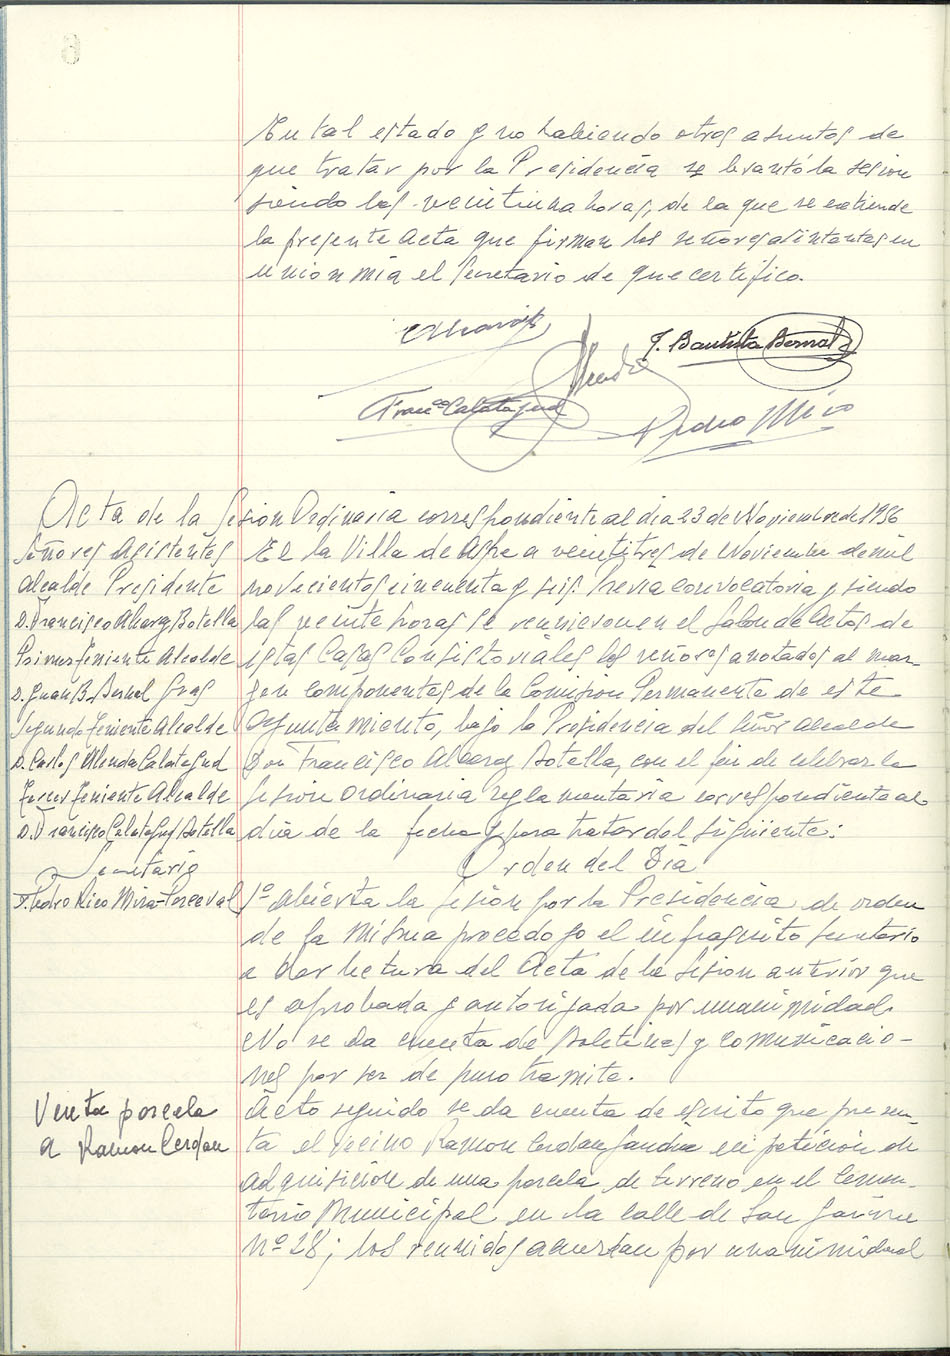 6
En tal estado y no habiendo otros asuntos de
que tratar por la Presidencia se levantó la sesion
siendo las veintiuna horas, de la que se extiende
la presente Acta que firman los señores asistentes en
union mia el Secretario de que certifico.
J. Bautista Bernal
Franco Calatayud
Pedro Rico
Acta de la Sesion Ordinaria correspondiente al dia 23 de Noviembre de 1956
Señores Asistentes
Alcalde Presidente
D. Francisco Alvarez Botella
Primer Teniente Alcalde
D. Juan B. Bernal Gras
Segundo Teniente Alcalde
D. Carlos Alenda Calatayud
Tercer Teniente Alcalde
D. Francisco Calatayud Botella
Secretario
D. Pedro Rico Mira-Perceval
En la Villa de Aspe a veintitres de Noviembre de mil
novecientos cincuenta y seis. Previa convocatoria y siendo
las veinte horas se reunieron en el Salon de Actos de
estas Casas Consistoriales los señores anotados al mar-
gen componentes de la Comision Permanente de este
Ayuntamiento, bajo la Presidencia del Señor Alcalde
Don Francisco Alvarez Botella, con el fin de celebrar la
sesion ordinaria reglamentaria correspondiente al
dia de la fecha y para tratar del siguiente:
Orden del Dia
1º Abierta la sesión por la Presidencia de orden
de la misma procedo yo el infrascrito Secretario
a dar lectura del Acta de la sesion anterior que
es aprobada y autorizada por unanimidad.
No se da cuenta de Boletines y comunicacio-
nes por ser de puro tramite.
Venta parcela
a Ramon Cerdan
Acto seguido se da cuenta de escrito que presen-
ta el vecino Ramon Cerdan en petición de
adquisición de una parcela de terreno en el Cemen-
terio Municipal en la calle de San
Nº 28; los reunidos acuerdan por unanimidad